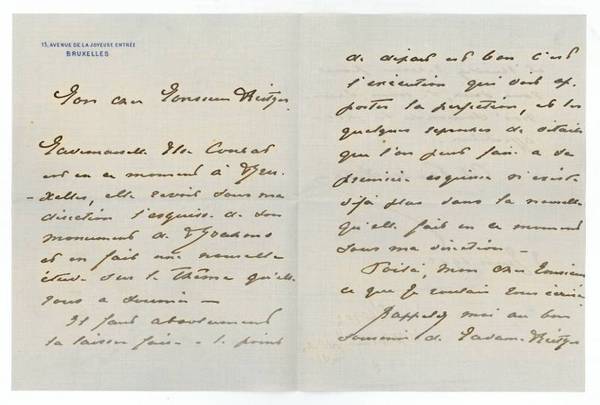 13, AVENUE DE LA JOYEUSE ENTRÉE
BRUXELLES
Mon cher Monsieur
Mademoiselle Ilse Conrat
est en ce moment à Bru-
xelles, elle revoit sous ma
direction l'esquisse de son
monument de Brahms
et en fait une nouvelle
étude sur le thème qu'elle
vous a soumis —
Il faut absolument
la laisser faire - le point
de départ est bon c'est
l'exécution qui doit ap-
porter la perfection, et les
quelques reproches de détails
que l'on peut faire à sa
première esquisse n'existe
déjà plus dans la nouvelle
qu'elle fait en ce moment
sous ma direction —
Voilà, mon cher Monsieur
ce que je voulais vous écrire
Rappelez moi au bon
souvenir de Madame